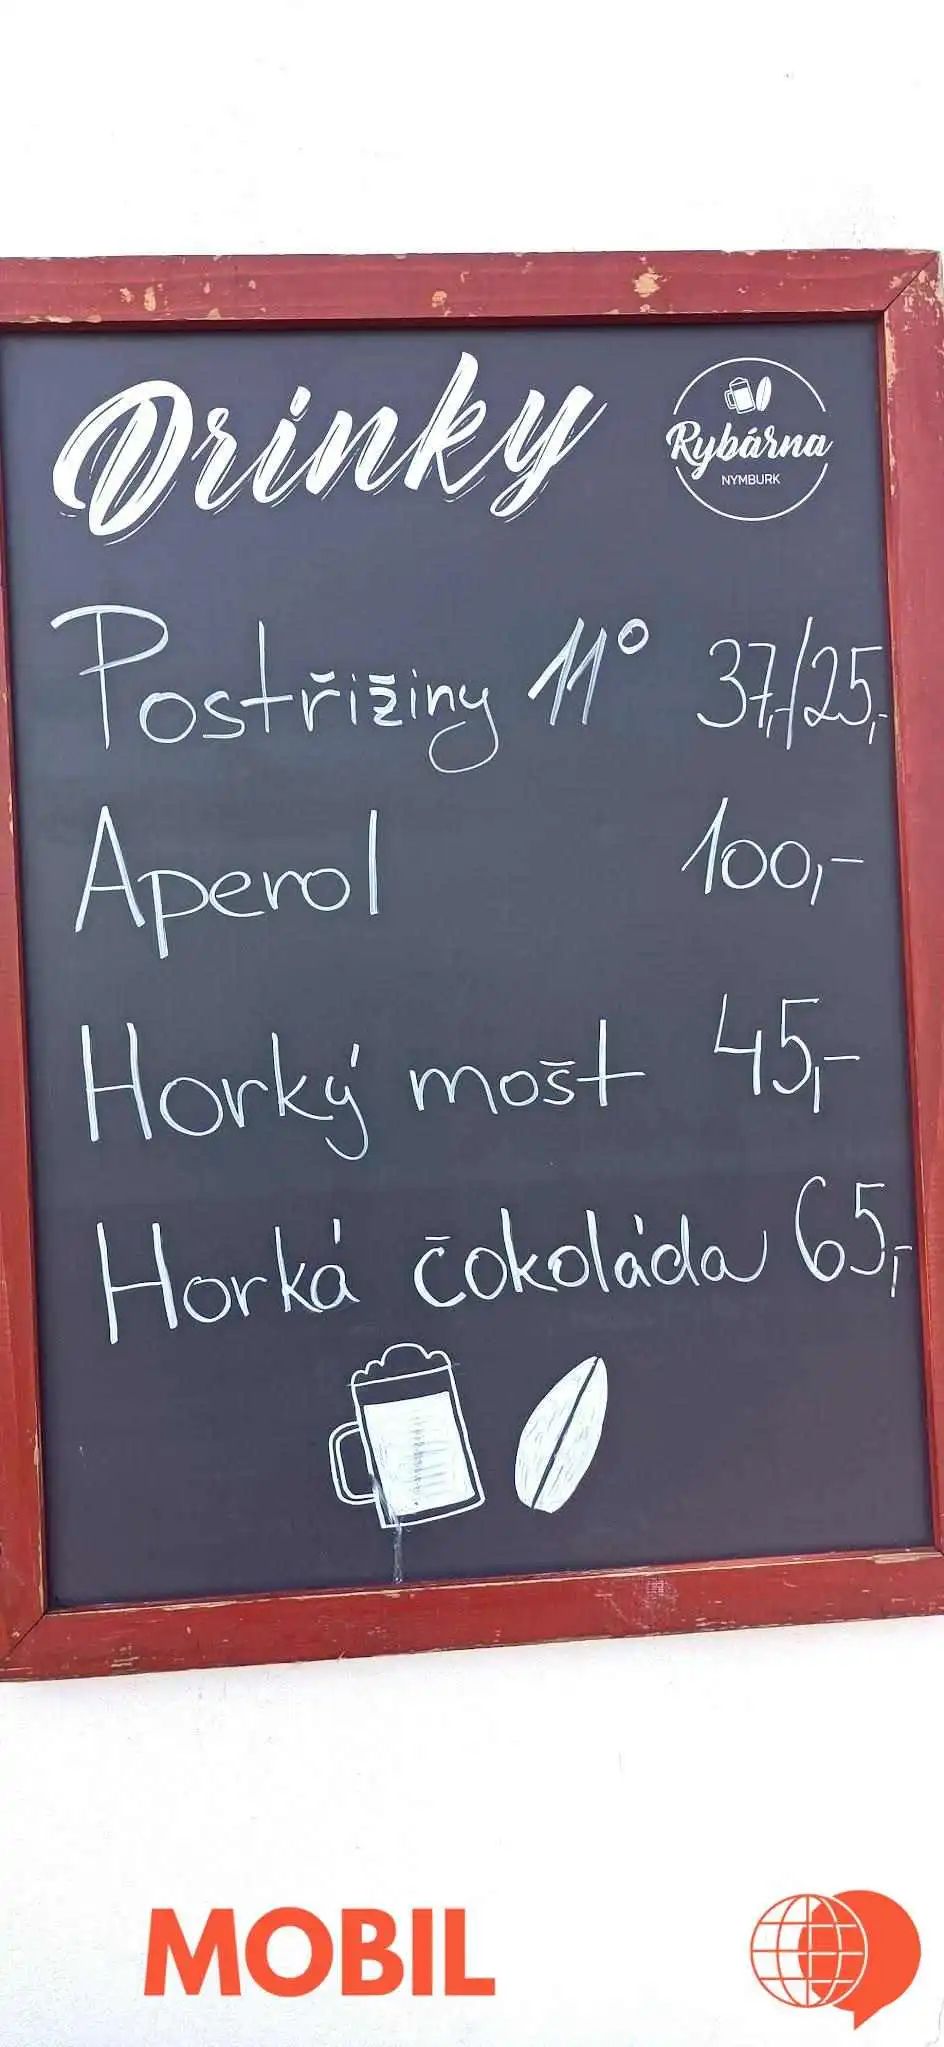 Drinky
Rybárna
NYMBURK
Postřižiny 11° 37,-/25,-
Aperol 100,-
Horký mošt 45,-
Horká čokoláda 65,-
MOBIL